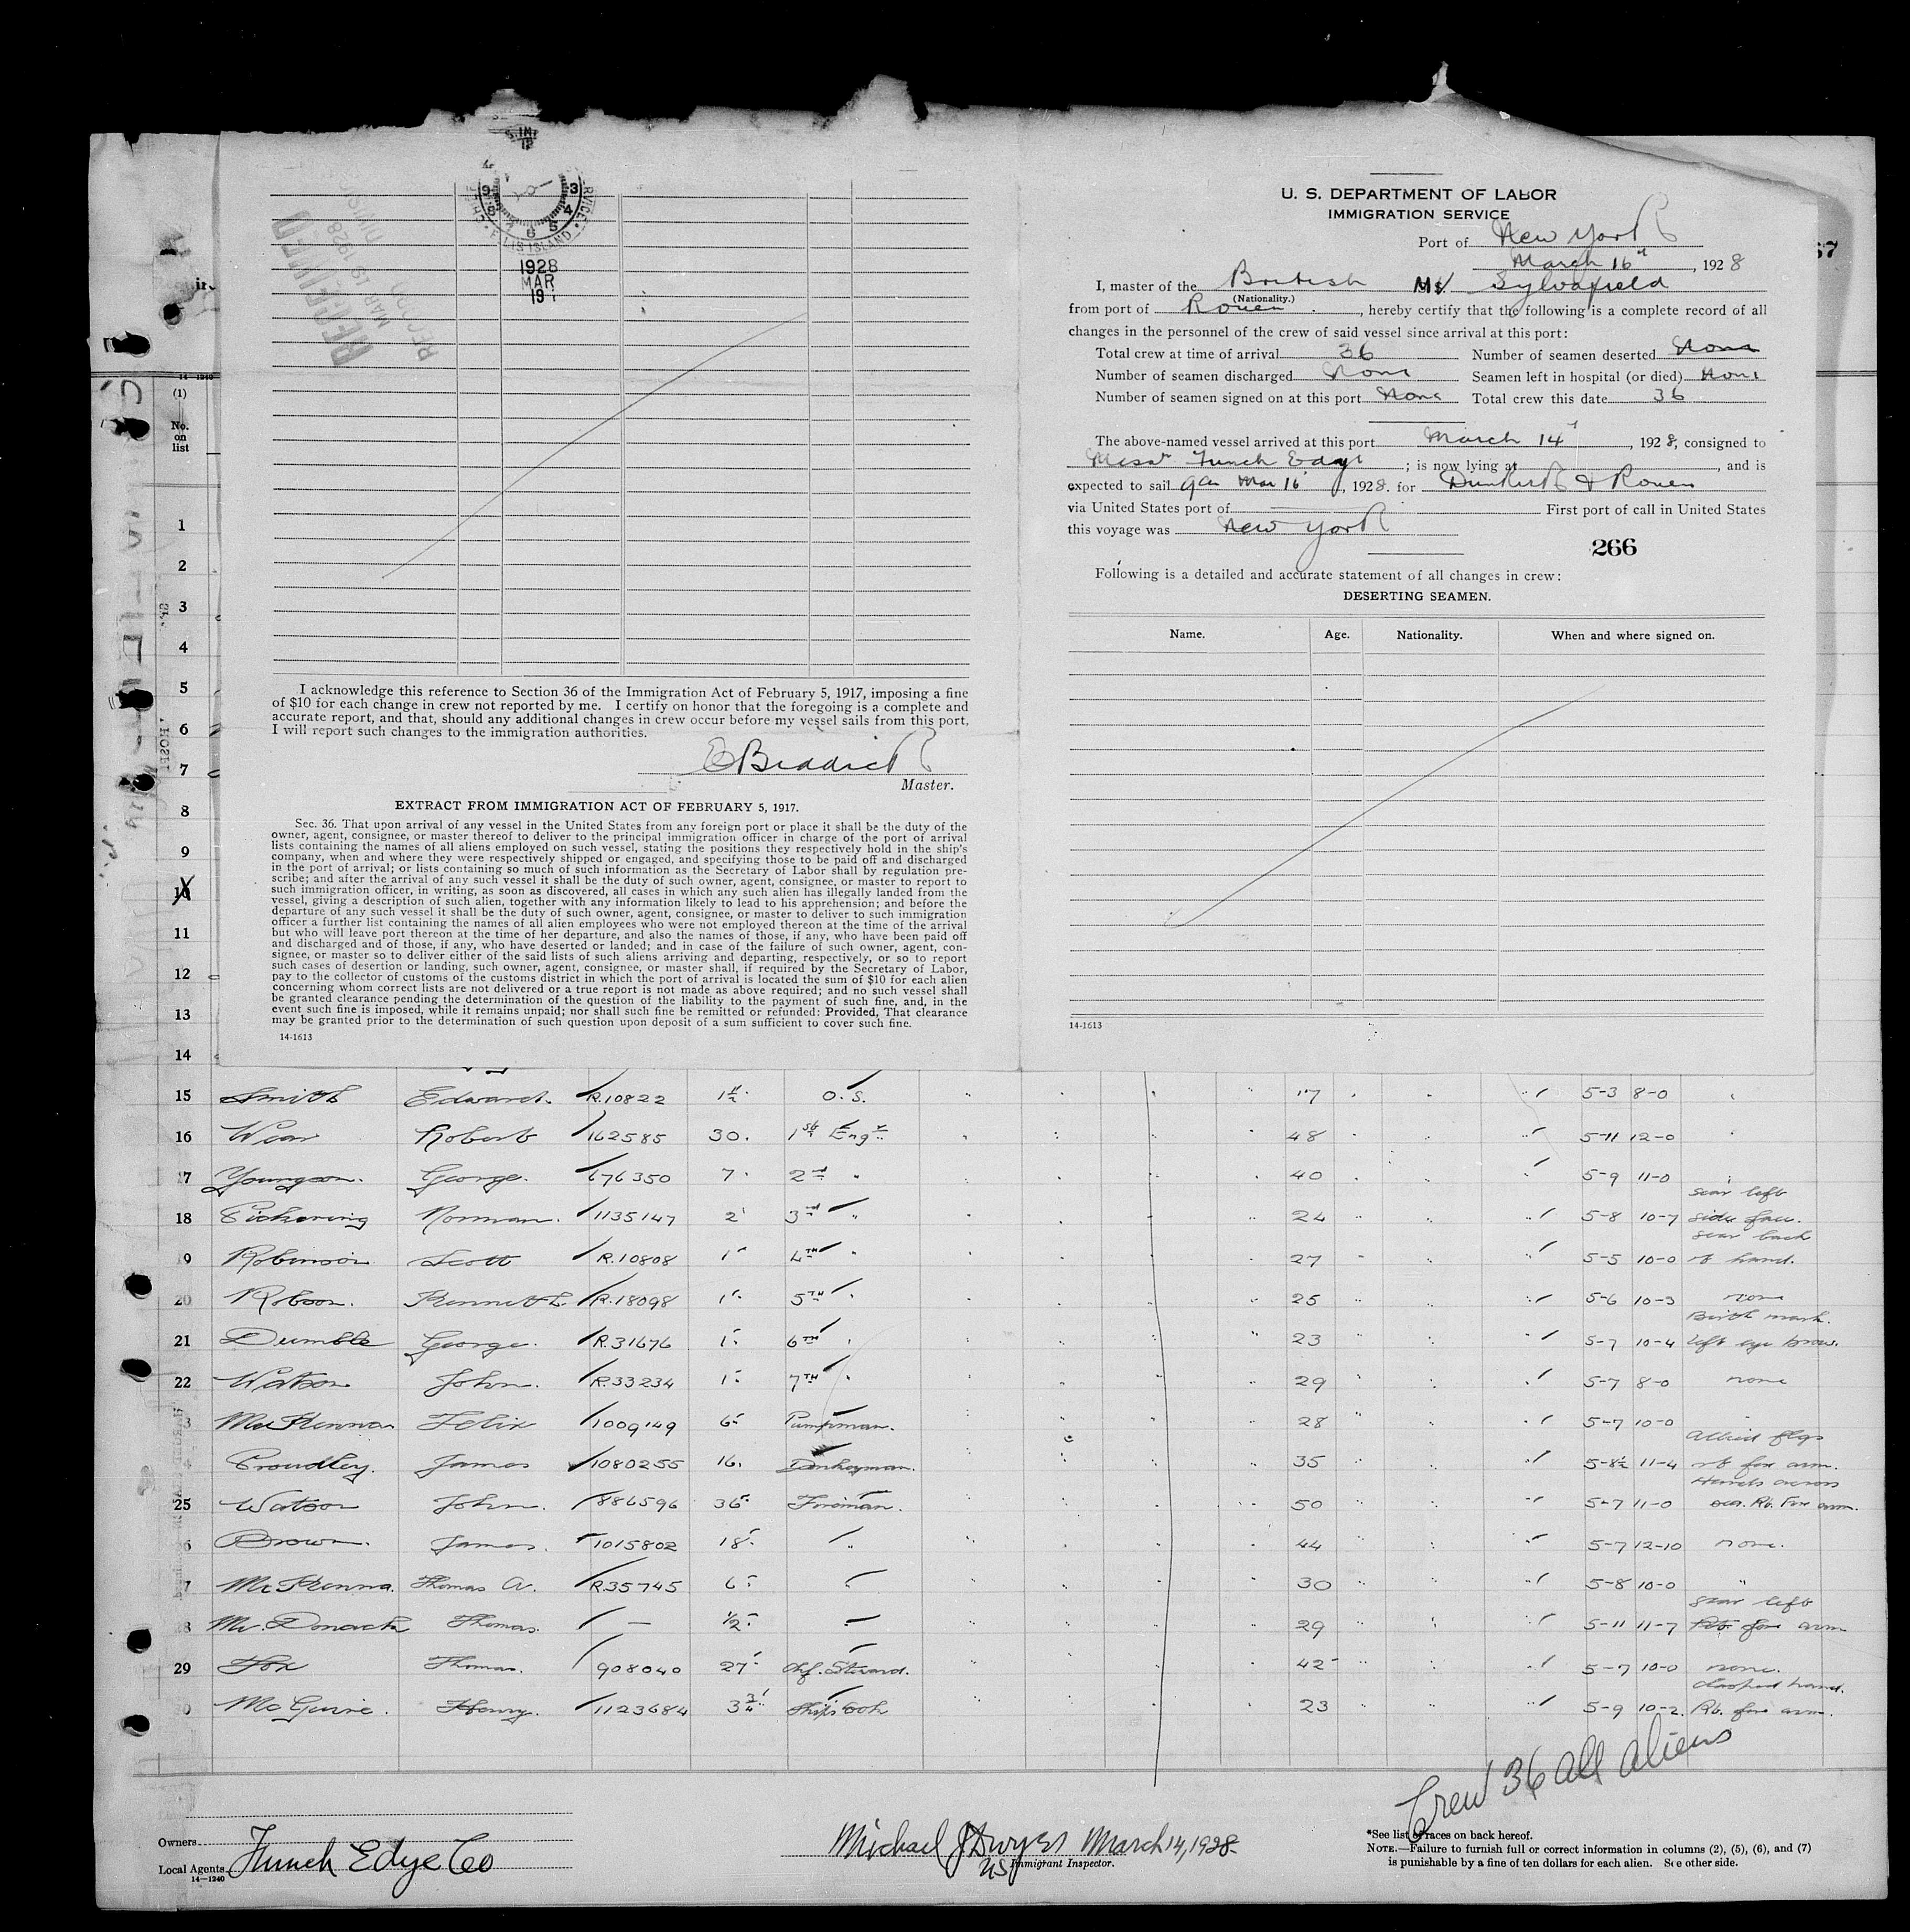 ELLIS ISLAND
1928
MAR
19
RECEIVED
MAR 19 1928
RECORD DIVISION
I acknowledge this reference to Section 36 of the Immigration Act of February 5, 1917, imposing a fine
of $10 for each change in crew not reported by me. I certify on honor that the foregoing is a complete and
accurate report, and that, should any additional changes in crew occur before my vessel sails from this port,
I will report such changes to the immigration authorities.
Master.
EXTRACT FROM IMMIGRATION ACT OF FEBRUARY 5, 1917.
Sec. 36. That upon arrival of any vessel in the United States from any foreign port or place it shall be the duty of the
owner, agent, consignee, or master thereof to deliver to the principal immigration officer in charge of the port of arrival
lists containing the names of all aliens employed on such vessel, stating the positions they respectively hold in the ship's
company, when and where they were respectively shipped or engaged, and specifying those to be paid off and discharged
in the port of arrival; or lists containing so much of such information as the Secretary of Labor shall by regulation pre-
scribe; and after the arrival of any such vessel it shall be the duty of such owner, agent, consignee, or master to report to
such immigration officer, in writing, as soon as discovered, all cases in which any such alien has illegally landed from the
vessel, giving a description of such alien, together with any information likely to lead to his apprehension; and before the
departure of any such vessel it shall be the duty of such owner, agent, consignee, or master to deliver to such immigration
officer a further list containing the names of all alien employees who were not employed thereon at the time of the arrival
but who will leave port thereon at the time of her departure, and also the names of those, if any, who have been paid off
and discharged and of those, if any, who have deserted or landed; and in case of the failure of such owner, agent, con-
signee, or master so to deliver either of the said lists of such aliens arriving and departing, respectively, or so to report
such cases of desertion or landing, such owner, agent, consignee, or master shall, if required by the Secretary of Labor,
pay to the collector of customs of the customs district in which the port of arrival is located the sum of $10 for each alien
concerning whom correct lists are not delivered or a true report is not made as above required; and no such vessel shall
be granted clearance pending the determination of the question of the liability to the payment of such fine, and, in the
event such fine is imposed, while it remains unpaid; nor shall such fine be remitted or refunded: Provided, That clearance
may be granted prior to the determination of such question upon deposit of a sum sufficient to cover such fine.
14-1613
U. S. DEPARTMENT OF LABOR
IMMIGRATION SERVICE
Port of New York
March 16th, 1928
I, master of the British M/V Sylvafield
(Nationality.)
from port of Rouen, hereby certify that the following is a complete record of all
changes in the personnel of the crew of said vessel since arrival at this port:
Total crew at time of arrival 36 Number of seamen deserted None
Number of seamen discharged None Seamen left in hospital (or died) None
Number of seamen signed on at this port None Total crew this date 36
The above-named vessel arrived at this port March 14, 1928, consigned to
Messrs Funch Edye; is now lying at , and is
expected to sail Mar 16, 1928. for Dunkirk & Rouen
via United States port of First port of call in United States
this voyage was New York
266
Following is a detailed and accurate statement of all changes in crew:
DESERTING SEAMEN.
Name. Age. Nationality. When and where signed on.
14-1613
14-1240
(1)
No.
on
list
1
2
3
4
5
6
7
8
9
10
11
12
13
14
15 Smith Edward. R.10822 1½ O. S. 17 5-3 8-0
16 Wear Robert 162585 30. 1st Engr. 48 5-11 12-0
17 Youngson. George. 676350 7 2nd " 40 5-9 11-0
18 Pickering Norman. 1135147 2 3rd " 24 5-8 10-7 scar left side face.
19 Robinson Scott R.10808 1 4TH " 27 5-5 10-0 scar back rt hand.
20 Robson. Kenneth. R.18098 1 5TH " 25 5-6 10-3 none
21 Dumble George. R.31676 1 6TH " 23 5-7 10-4 Birth mark. left eye brow.
22 Watson John. R.33234 1 7TH " 29 5-7 8-0 none
23 McKenna Felix 1009149 6 Pumpman. 28 5-7 10-0 "
24 Proudley. James 1080255 16. Donkeyman. 35 5-8½ 11-4 Allied flgs rt fore arm.
25 Watson John. 886596 36 Fireman. 50 5-7 11-0 Hands across sea. Rt. Fore arm.
26 Brown. James. 1015802 18 " 44 5-7 12-10 none.
27 McKenna. Thomas A. R.35745 6 " 30 5-8 10-0 "
28 Thomas. — ½ " 29 5-11 11-7 scar left fore arm
29 Fox Thomas. 908040 27 Chf. Steward. 42 5-7 10-0 none.
30 McGuire. Henry. 1123684 3¾ Ships Cook 23 5-9 10-2. clasped hand. Rt. fore arm.
Crew 36 all aliens
Owners
Local Agents Funch Edye Co
14-1240
Michael J Dwyer March 14, 1928
US Immigrant Inspector.
*See list of races on back hereof.
NOTE.—Failure to furnish full or correct information in columns (2), (5), (6), and (7)
is punishable by a fine of ten dollars for each alien. See other side.